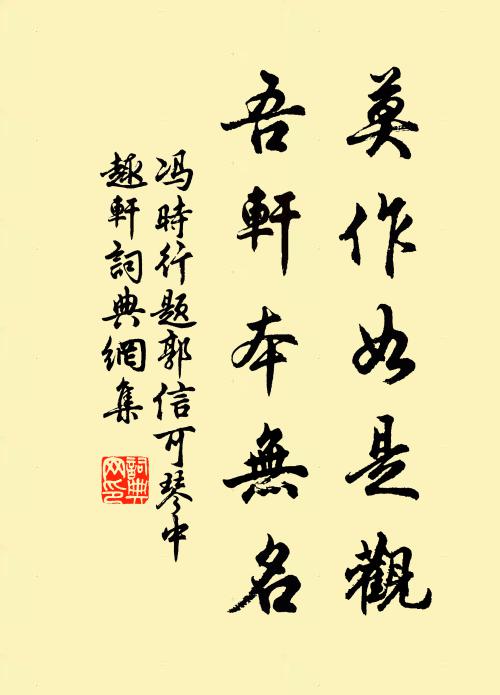 莫作如是觀
吾軒本無名
冯時行题郭信可琴中
趣軒詞典網集
詞典网印